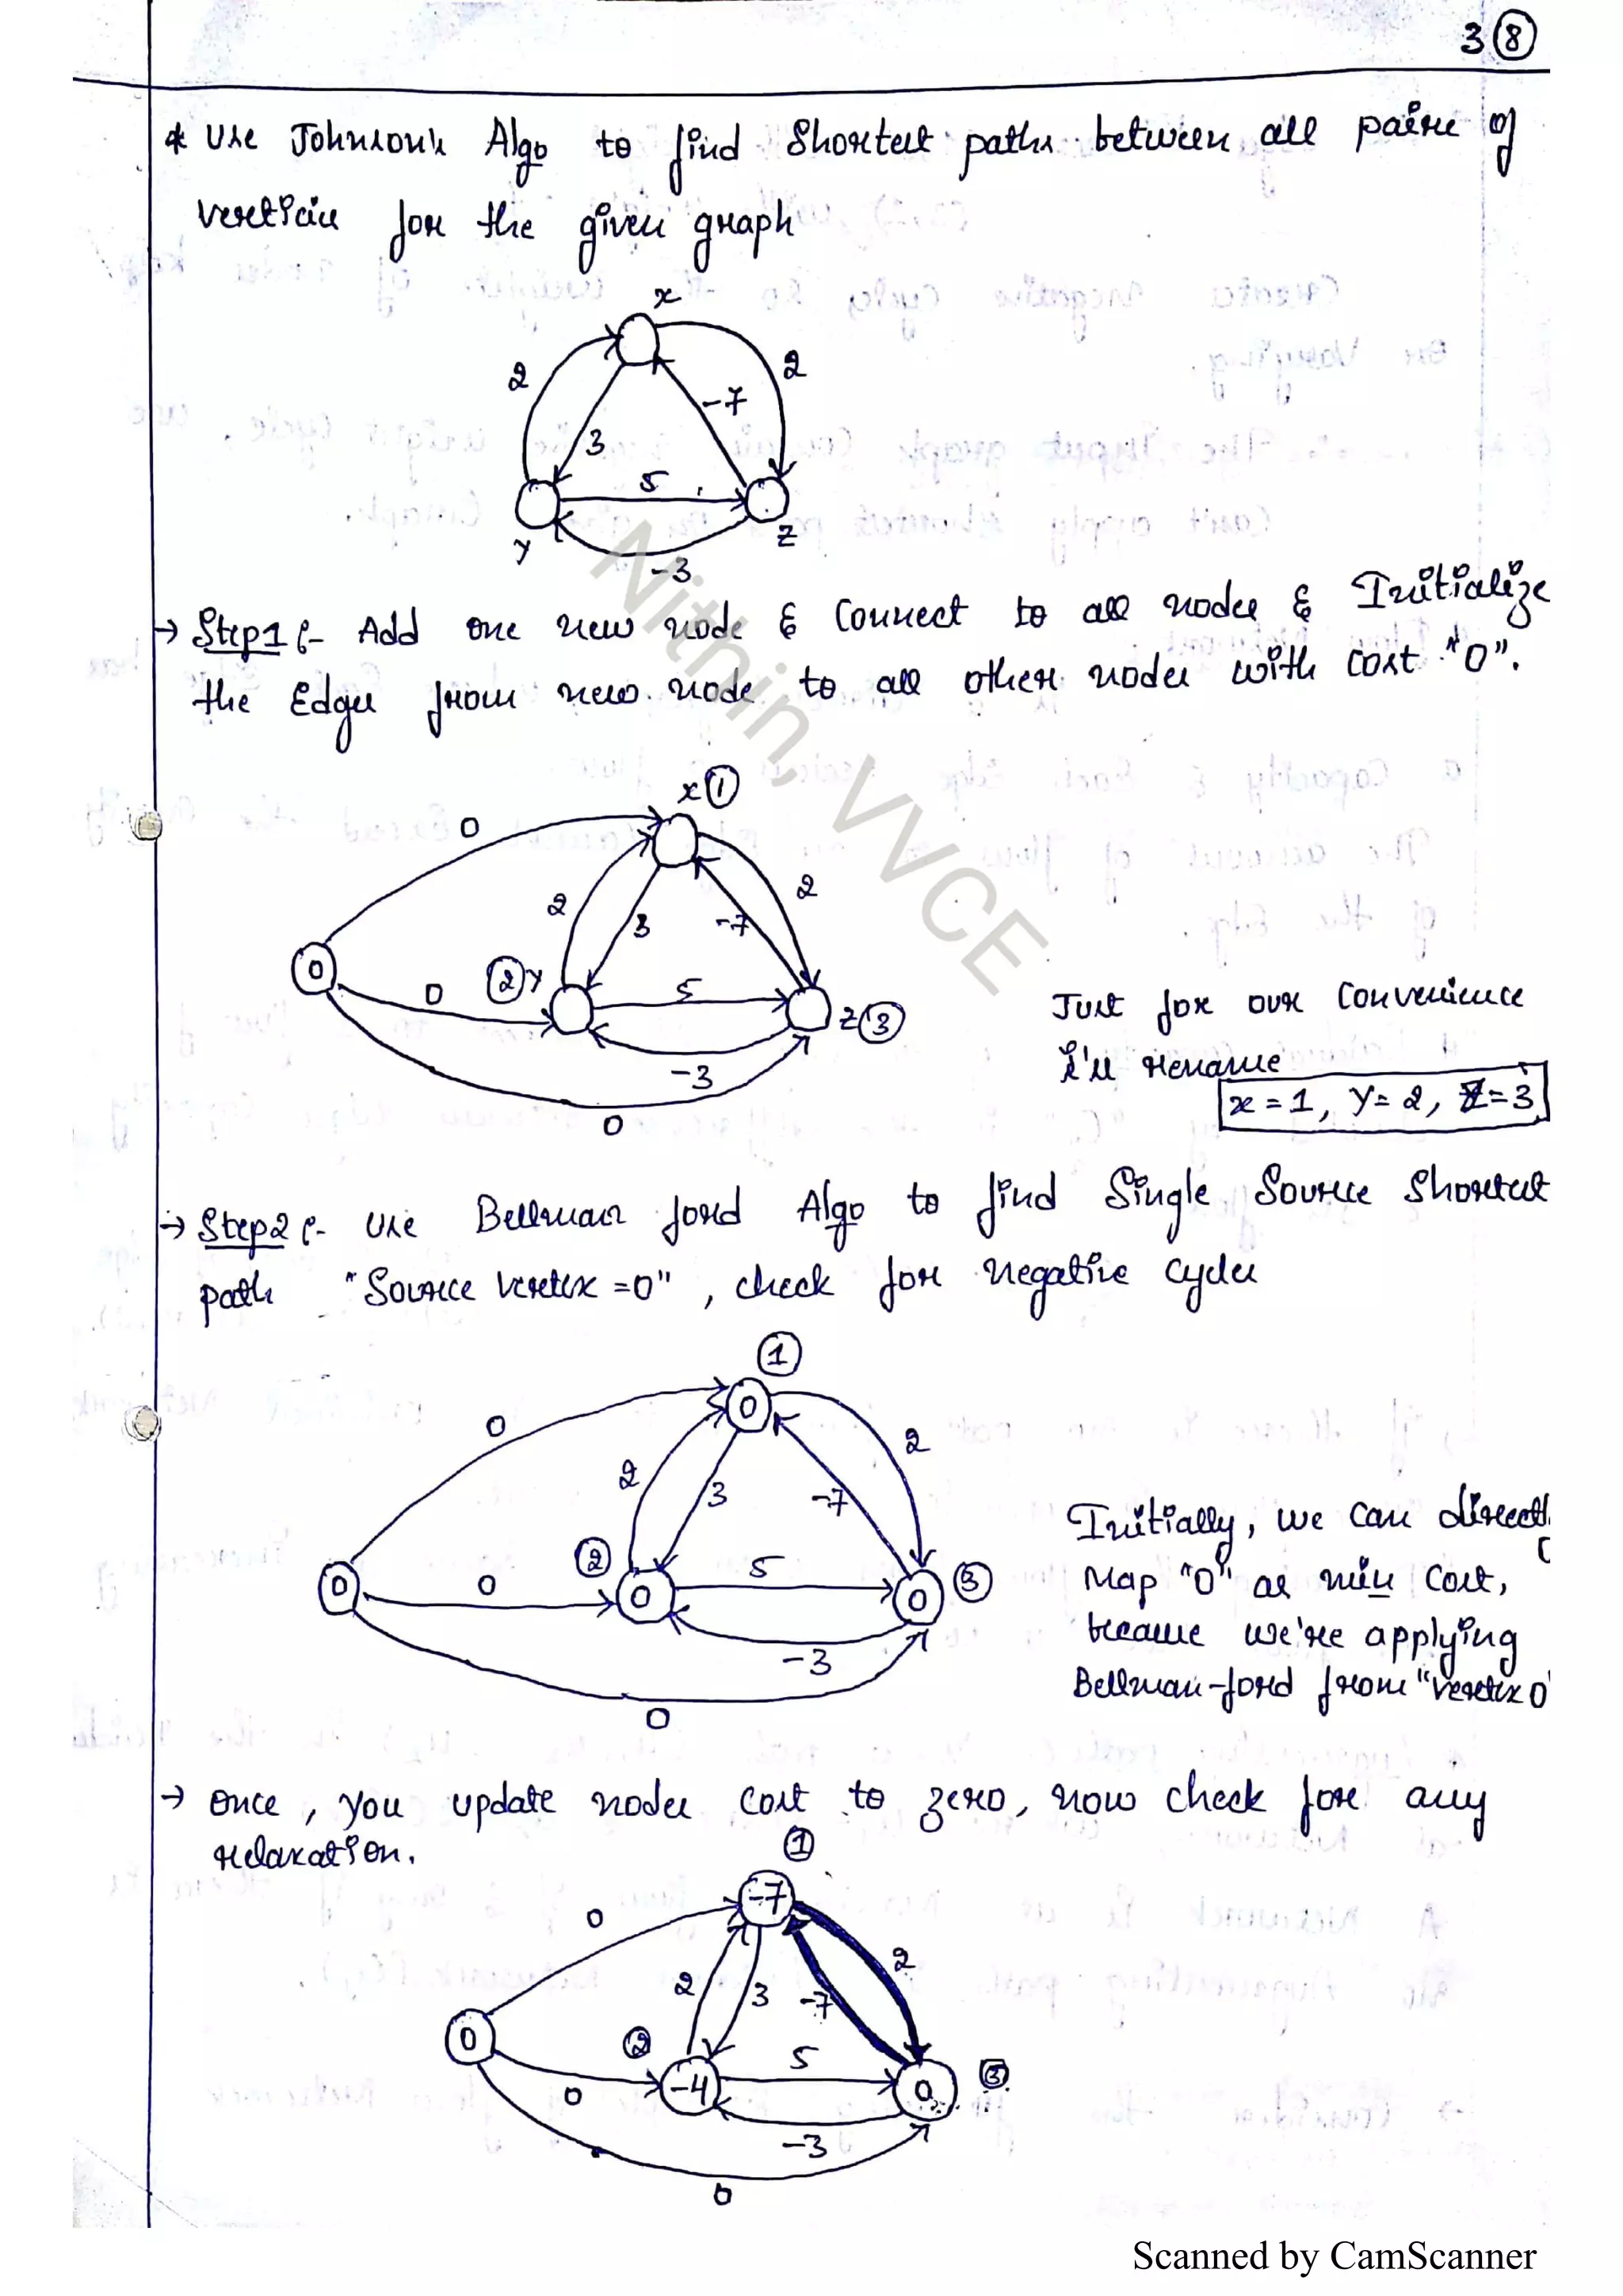 3 8
* Use Johnson's Algo to find Shortest paths between all pairs of
vertices for the given graph
x
2
2
-7
3
5
y
z
-3
→ Step1 :- Add one new node & Connect to all nodes & Initialize
the Edges from new node to all other nodes with cost "0".
x 1
0
2
2
3
-7
0
2 y
5
0
z 3
-3
0
Just for our Convenience
I'll rename
x = 1, y = 2, z = 3
→ Step2 :- Use Bellman ford Algo to find Single Source Shortest
path "Source vertex = 0", check for negative cycles
1
0
0
2
2
3
-7
2
5
3
0
0
0
0
-3
0
Initially, we can directly
Map "0" as min Cost,
because we're applying
Bellman-ford from "vertex 0"
→ Once, you update nodes cost to zero, now check for any
relaxation.
1
-7
0
2
2
3
-7
0
2
5
3
0
-4
0
-3
0
Nithin, VVCE
Scanned by CamScanner